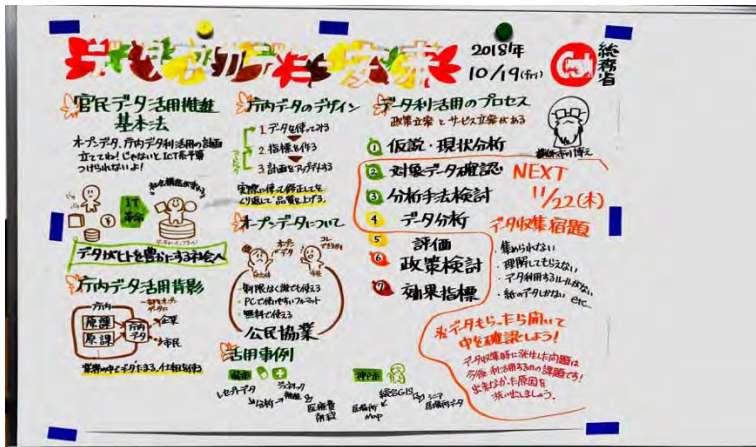 2018年
10/19(金)
総務省
官民データ活用推進
基本法
オープンデータ、庁内データ利活用の計画
立ててね！じゃないとICT系予算
つけられないよ！
IT
革命
データがヒトを豊かにする社会へ
庁内データ活用背景
庁内
原課
原課
庁内
データ
企業
市民
業務の中でデータたまる仕組を使う
庁内データのデザイン
1.データを使ってみる
2.指標を作る
3.計画をアップデイトする
実際に使って修正してを
くり返して品質を上げる。
オープンデータについて
オープン
データ
自治体
・制限なく誰でも使える
・PCで使いやすいフォーマット
・無料で使える
公民協業
活用事例
レセプトデータ
分析
ジェネリック
推奨
医療費
削減
総合GIS
シニア
Map
データ利活用のプロセス
政策立案とサービス立案がある
1 仮説・現状分析
2 対象データ確認
3 分析手法検討
4 データ分析
5 評価
6 政策検討
7 効果指標
NEXT
11/22(木)
データ収集宿題
・集められない
・理解してもらえない
・データ利用するルールがない
・紙のデータしかない etc.
※データもらったら開いて
中を確認しよう！
データ収集時に発生した問題は
今後利活用するのの課題です！
出来なかった原因を
洗い出しましょう。